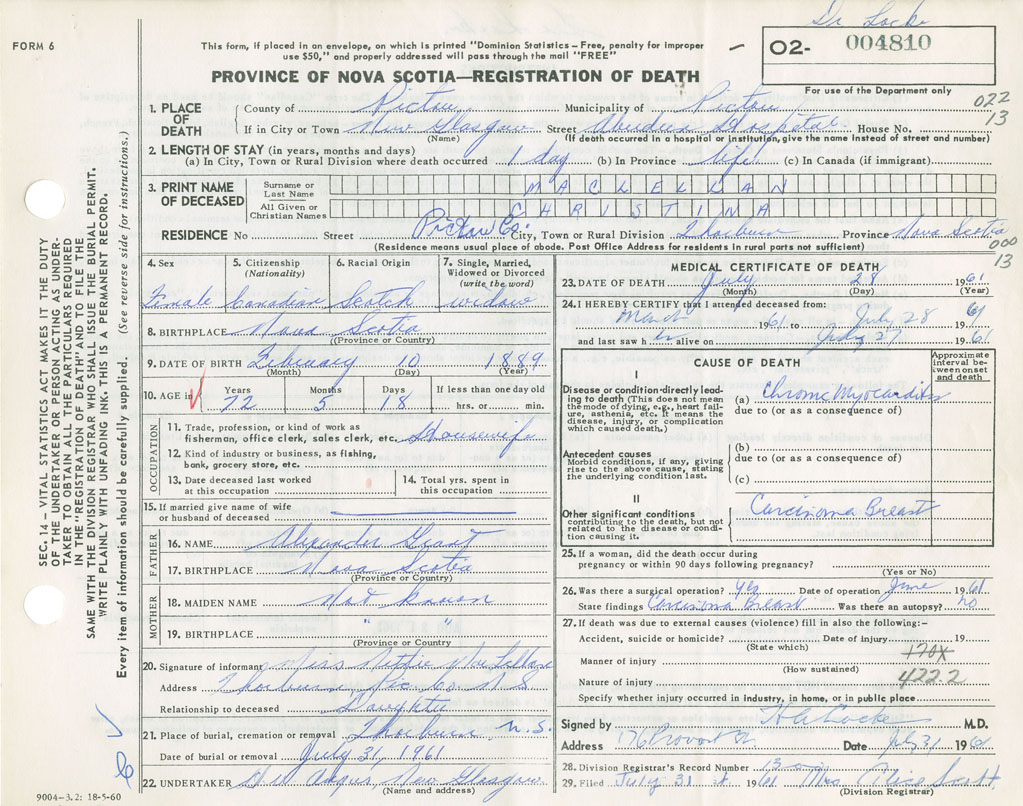 Dr Locke
FORM 6
This form, if placed in an envelope, on which is printed "Dominion Statistics – Free, penalty for improper
use $50," and properly addressed will pass through the mail "FREE"
O2- 004810
PROVINCE OF NOVA SCOTIA—REGISTRATION OF DEATH
For use of the Department only
022
13
1. PLACE OF DEATH
County of Pictou Municipality of Pictou
If in City or Town New Glasgow Street Aberdeen Hospital House No.
(Name) (If death occurred in a hospital or institution, give name instead of street and number)
2. LENGTH OF STAY (in years, months and days)
(a) In City, Town or Rural Division where death occurred 1 day (b) In Province life (c) In Canada (if immigrant)
3. PRINT NAME OF DECEASED
Surname or Last Name MACLELLAN
All Given or Christian Names CHRISTINA
RESIDENCE No Street Pictou Co. City, Town or Rural Division Thorburn Province Nova Scotia
(Residence means usual place of abode. Post Office Address for residents in rural parts not sufficient)
000
13
4. Sex 5. Citizenship (Nationality) 6. Racial Origin 7. Single, Married, Widowed or Divorced (write the word)
Female Canadian Scotch widow
8. BIRTHPLACE Nova Scotia
(Province or Country)
9. DATE OF BIRTH February 10 1889
(Month) (Day) (Year)
10. AGE in Years Months Days If less than one day old
72 5 18 hrs. or min.
OCCUPATION
11. Trade, profession, or kind of work as
fisherman, office clerk, sales clerk, etc. Housewife
12. Kind of industry or business, as fishing,
bank, grocery store, etc.
13. Date deceased last worked at this occupation
14. Total yrs. spent in this occupation
15. If married give name of wife
or husband of deceased
FATHER
16. NAME Alexander Grant
17. BIRTHPLACE Nova Scotia
(Province or Country)
MOTHER
18. MAIDEN NAME Not known
19. BIRTHPLACE " "
(Province or Country)
20. Signature of informant Miss Nettie MacLellan
Address Thorburn, Pic. Co. N S
Relationship to deceased Daughter
21. Place of burial, cremation or removal Thorburn N.S.
Date of burial or removal July 31, 1961
22. UNDERTAKER Angus, New Glasgow
(Name and address)
9004–3.2: 18-5-60
MEDICAL CERTIFICATE OF DEATH
23. DATE OF DEATH July 28 1961
(Month) (Day) (Year)
24. I HEREBY CERTIFY that I attended deceased from:
March 1961 to July 28 1961
and last saw her alive on July 27 1961
CAUSE OF DEATH
Approximate interval between onset and death
I
Disease or condition directly leading to death (This does not mean the mode of dying, e.g., heart failure, asthenia, etc. It means the disease, injury, or complication which caused death.)
(a) Chronic Myocarditis
due to (or as a consequence of)
Antecedent causes
Morbid conditions, if any, giving rise to the above cause, stating the underlying condition last.
(b)
due to (or as a consequence of)
(c)
II
Other significant conditions
contributing to the death, but not related to the disease or condition causing it.
Carcinoma Breast
25. If a woman, did the death occur during
pregnancy or within 90 days following pregnancy?
(Yes or No)
26. Was there a surgical operation? Yes Date of operation June 1961
State findings Carcinoma Breast Was there an autopsy? No
27. If death was due to external causes (violence) fill in also the following:–
Accident, suicide or homicide? Date of injury 19
(State which)
Manner of injury 170X
(How sustained)
Nature of injury 422.2
Specify whether injury occurred in industry, in home, or in public place
Signed by H A Locke M.D.
Address 176 Provost St. Date July 31 1961
28. Division Registrar's Record Number
29. Filed July 31st 1961 Mrs Alice Scott
(Division Registrar)
SEC. 14 – VITAL STATISTICS ACT MAKES IT THE DUTY
OF THE UNDERTAKER OR PERSON ACTING AS UNDER-
TAKER TO OBTAIN ALL THE PARTICULARS REQUIRED
IN THE "REGISTRATION OF DEATH" AND TO FILE THE
SAME WITH THE DIVISION REGISTRAR WHO SHALL ISSUE THE BURIAL PERMIT.
WRITE PLAINLY WITH UNFADING INK. THIS IS A PERMANENT RECORD.
Every item of information should be carefully supplied. (See reverse side for instructions.)